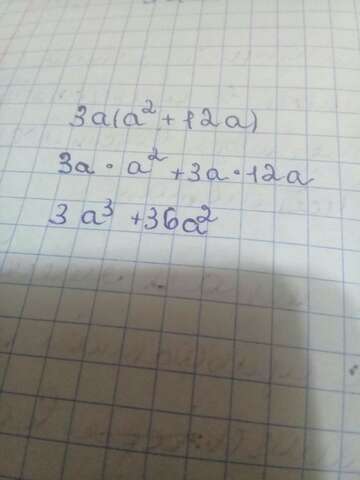 3a(a² + 12a)
3a · a² + 3a · 12a
3a³ + 36a²